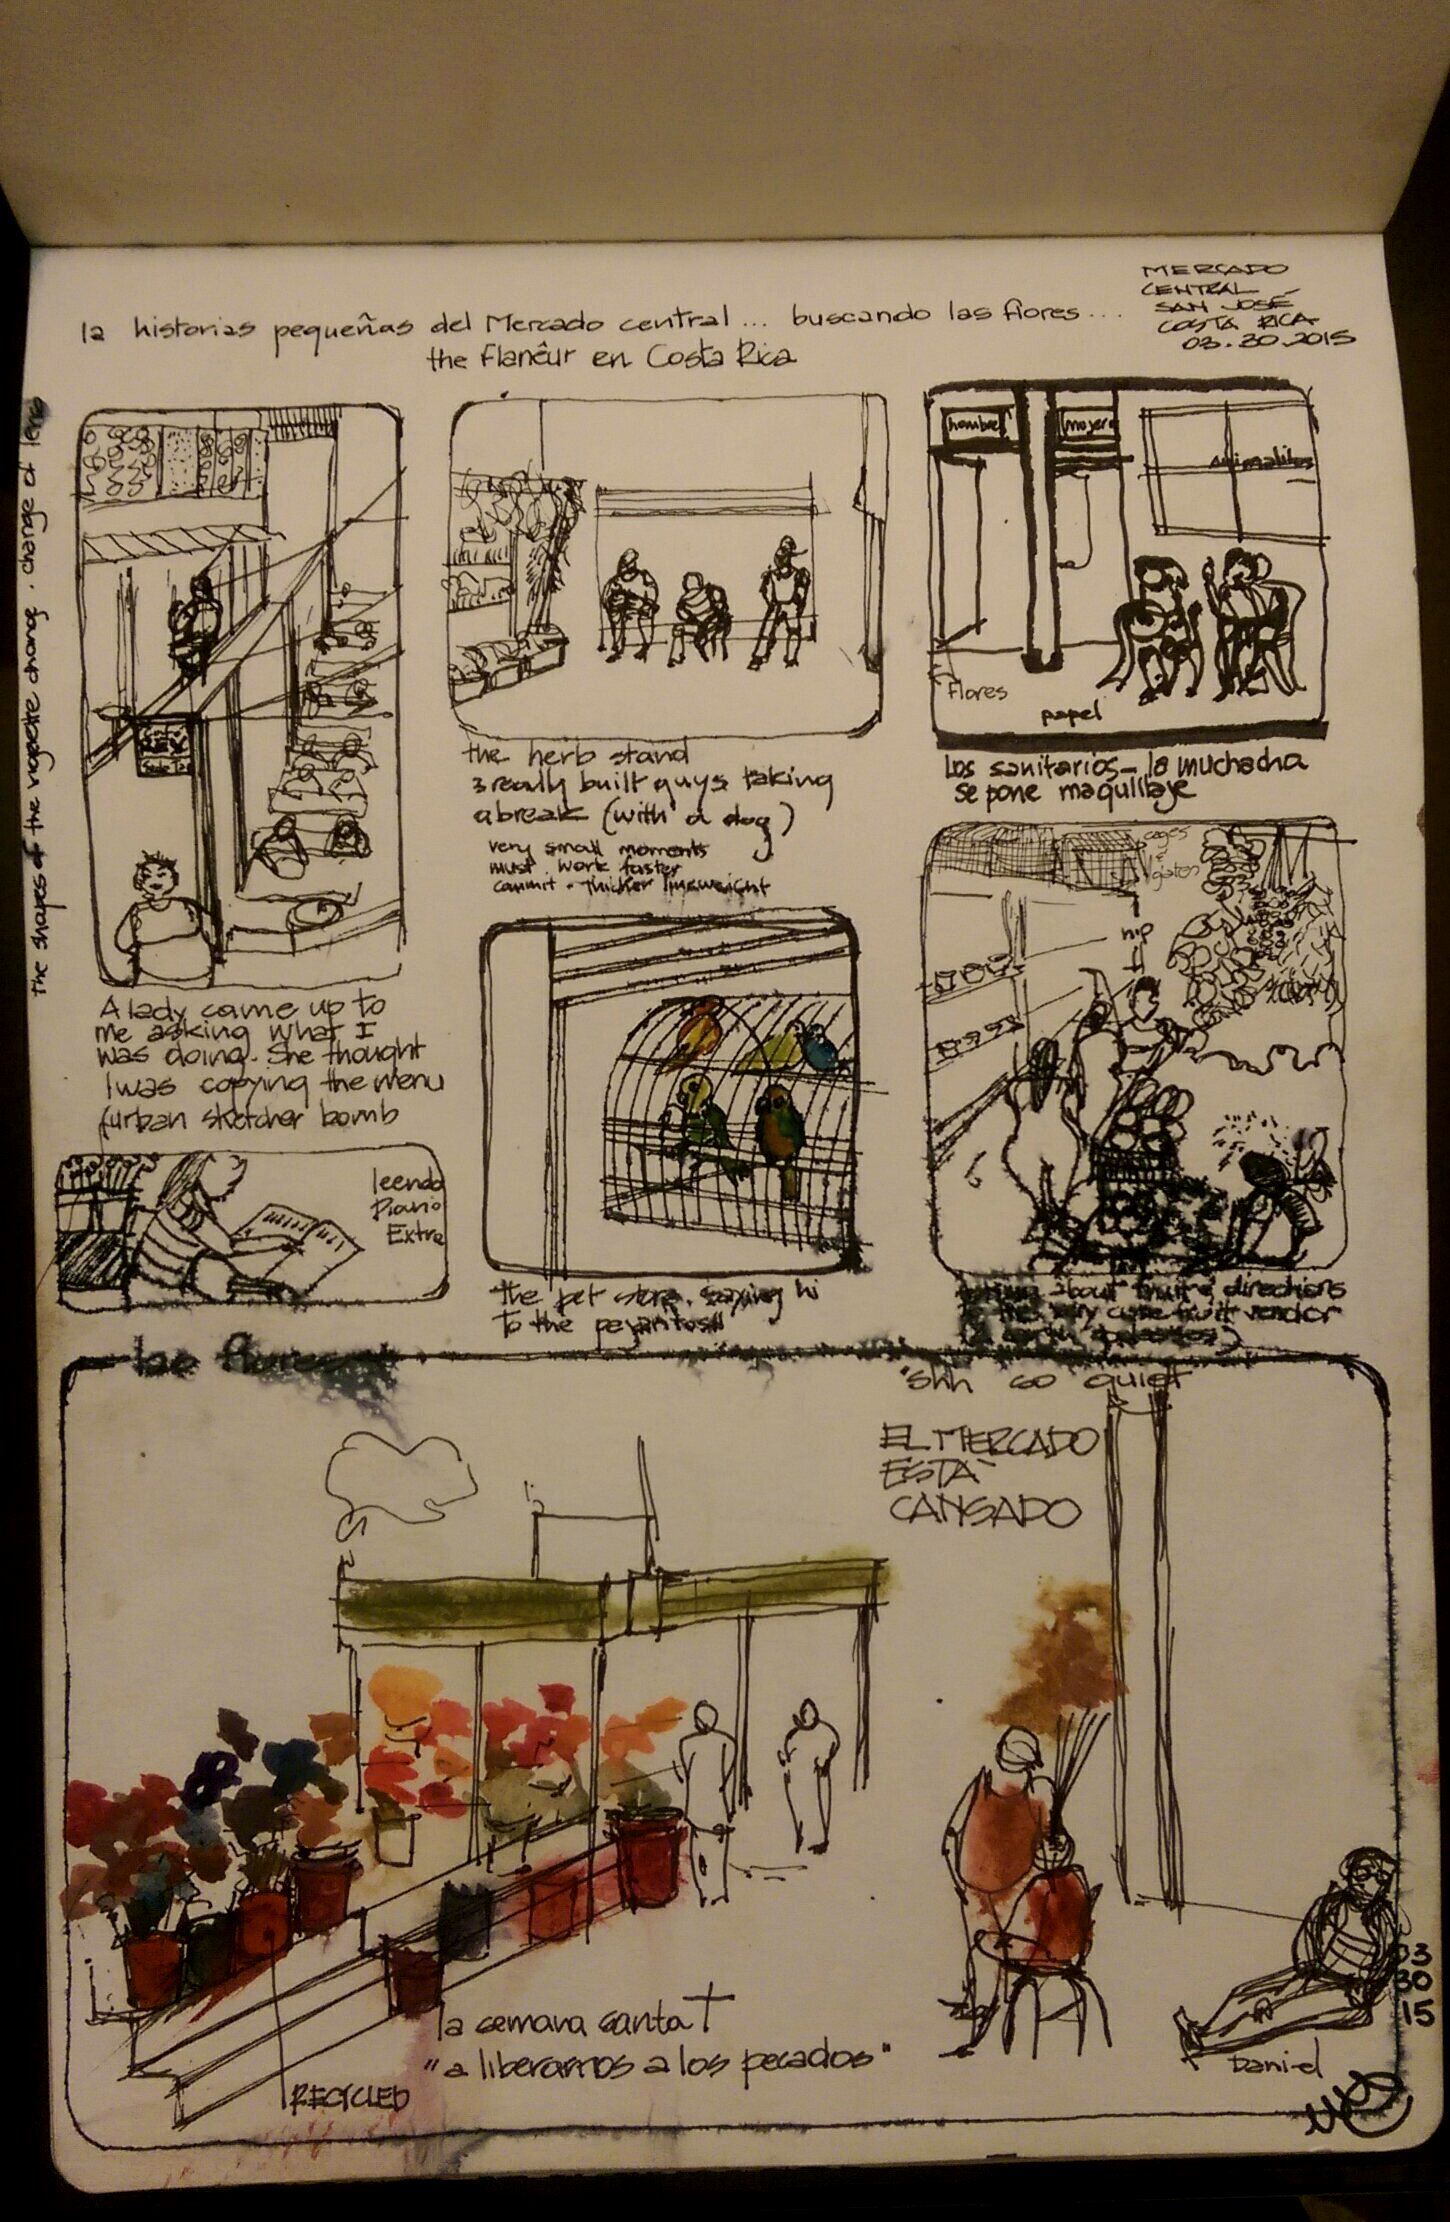 la historias pequeñas del Mercado central... buscando las flores...
the Flanêur en Costa Rica
MERCADO
CENTRAL
SAN JOSÉ
COSTA RICA
03.30.2015
the shapes of the vignette change. change of lens
A lady came up to
me asking what I
was doing. She thought
I was copying the menu
(urban sketcher bomb
leendo
Diario
Extra
the herb stand
3 really built guys taking
a break (with a dog)
very small moments
must work faster
commit. thicker lineweight
hombres
mujer
animalitos
flores
papel
Los sanitarios - la muchacha
se pone maquillaje
the pet store. saying hi
to the pejaritos!!
cages
nip
about fruit & directions
to the very cute fruit vendor
las flores
"shh so quiet
EL MERCADO
ESTÁ
CANSADO
la semana santa
"a liberarnos a los pecados"
RECYCLED
Daniel
03
30
15